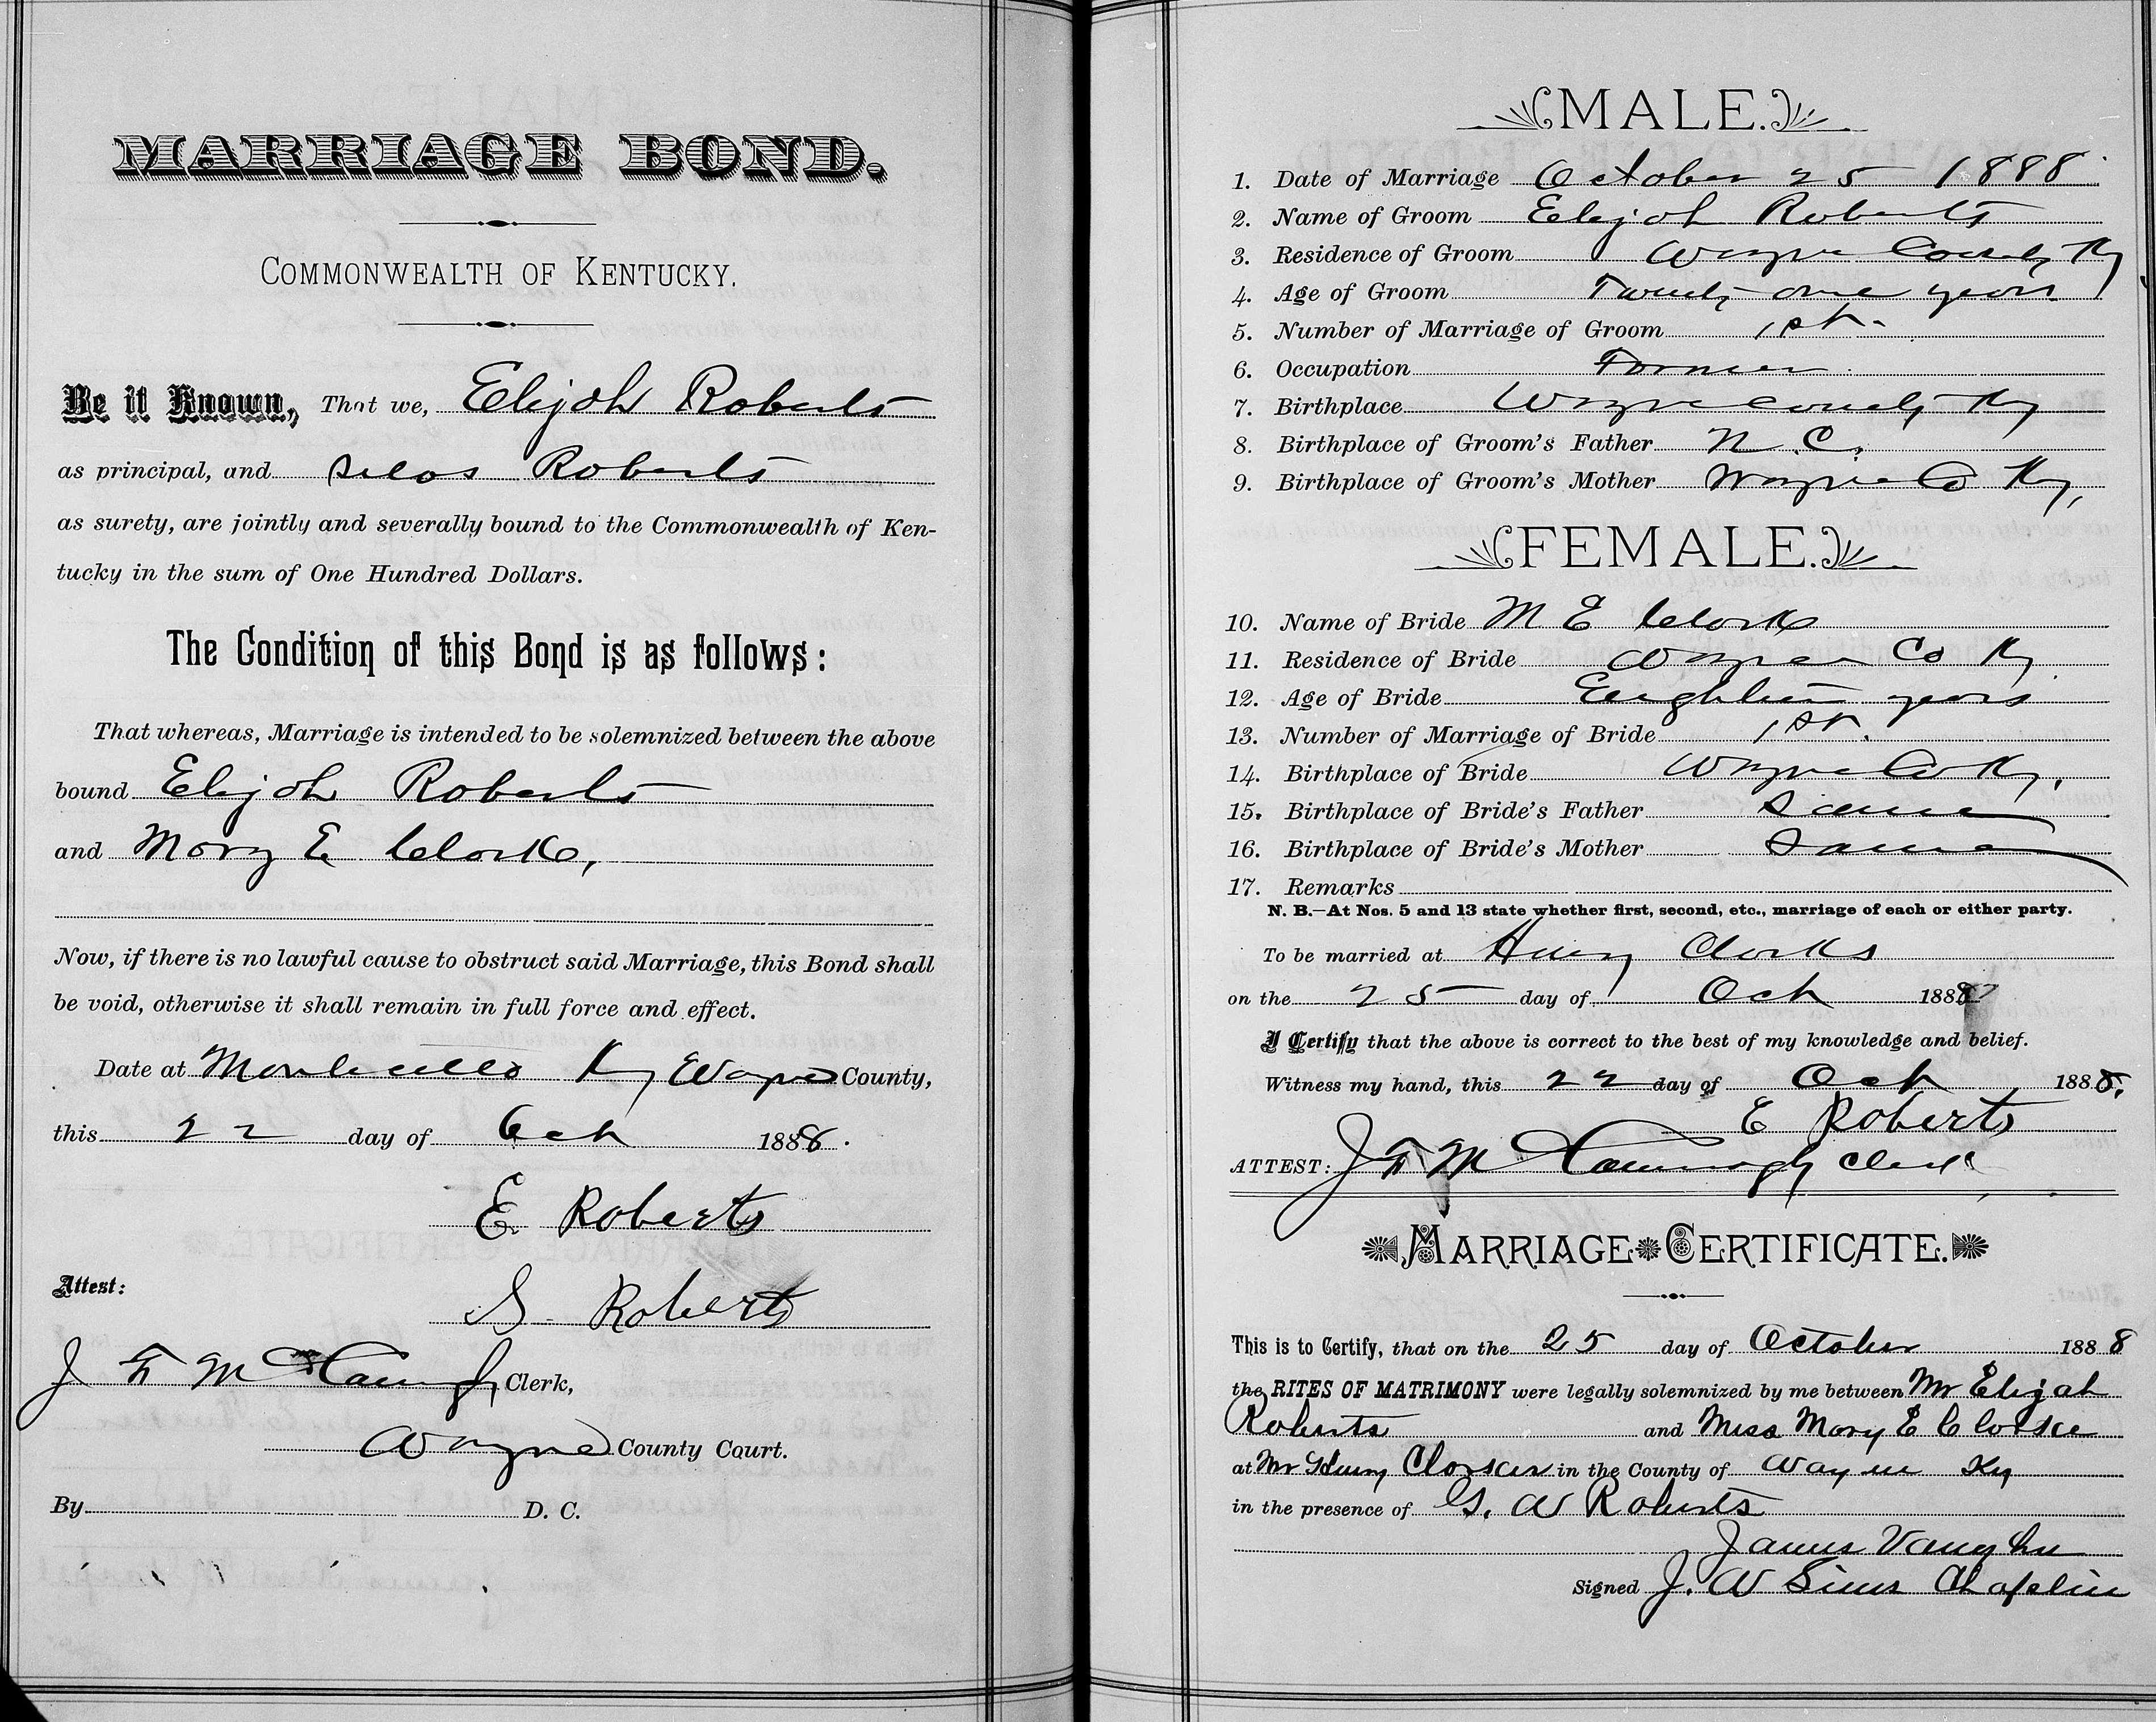 MARRIAGE BOND.
COMMONWEALTH OF KENTUCKY.
Be it Known, That we, Elijah Roberts
as principal, and Silas Roberts
as surety, are jointly and severally bound to the Commonwealth of Ken-
tucky in the sum of One Hundred Dollars.
The Condition of this Bond is as follows:
That whereas, Marriage is intended to be solemnized between the above
bound Elijah Roberts
and Mary E. Clarke,
Now, if there is no lawful cause to obstruct said Marriage, this Bond shall
be void, otherwise it shall remain in full force and effect.
Date at Monticello Ky Wayne County,
this 22 day of Oct 1888.
E. Roberts
Attest:
S. Roberts
J F M Clerk,
Wayne County Court.
By D. C.
MALE.
1. Date of Marriage October 25 1888
2. Name of Groom Elijah Roberts
3. Residence of Groom Wayne County Ky
4. Age of Groom Twenty one years
5. Number of Marriage of Groom 1st.
6. Occupation Farmer
7. Birthplace Wayne County Ky
8. Birthplace of Groom's Father N. C.
9. Birthplace of Groom's Mother Wayne Co Ky,
FEMALE.
10. Name of Bride M E Clarke
11. Residence of Bride Wayne Co Ky
12. Age of Bride Eighteen years
13. Number of Marriage of Bride 1st.
14. Birthplace of Bride Wayne Co Ky.
15. Birthplace of Bride's Father Same
16. Birthplace of Bride's Mother Same
17. Remarks
N. B.—At Nos. 5 and 13 state whether first, second, etc., marriage of each or either party.
To be married at Henry Clarks
on the 25 day of Oct 1888
I Certify that the above is correct to the best of my knowledge and belief.
Witness my hand, this 22 day of Oct, 1888.
E Roberts
ATTEST: J F M Clerk
MARRIAGE CERTIFICATE.
This is to Certify, that on the 25 day of October 1888
the RITES OF MATRIMONY were legally solemnized by me between Mr Elijah
Roberts and Miss Mary E
at Mr Henry in the County of Wayne Ky
in the presence of G. W Roberts
James Vaughn
Signed J. W Sims